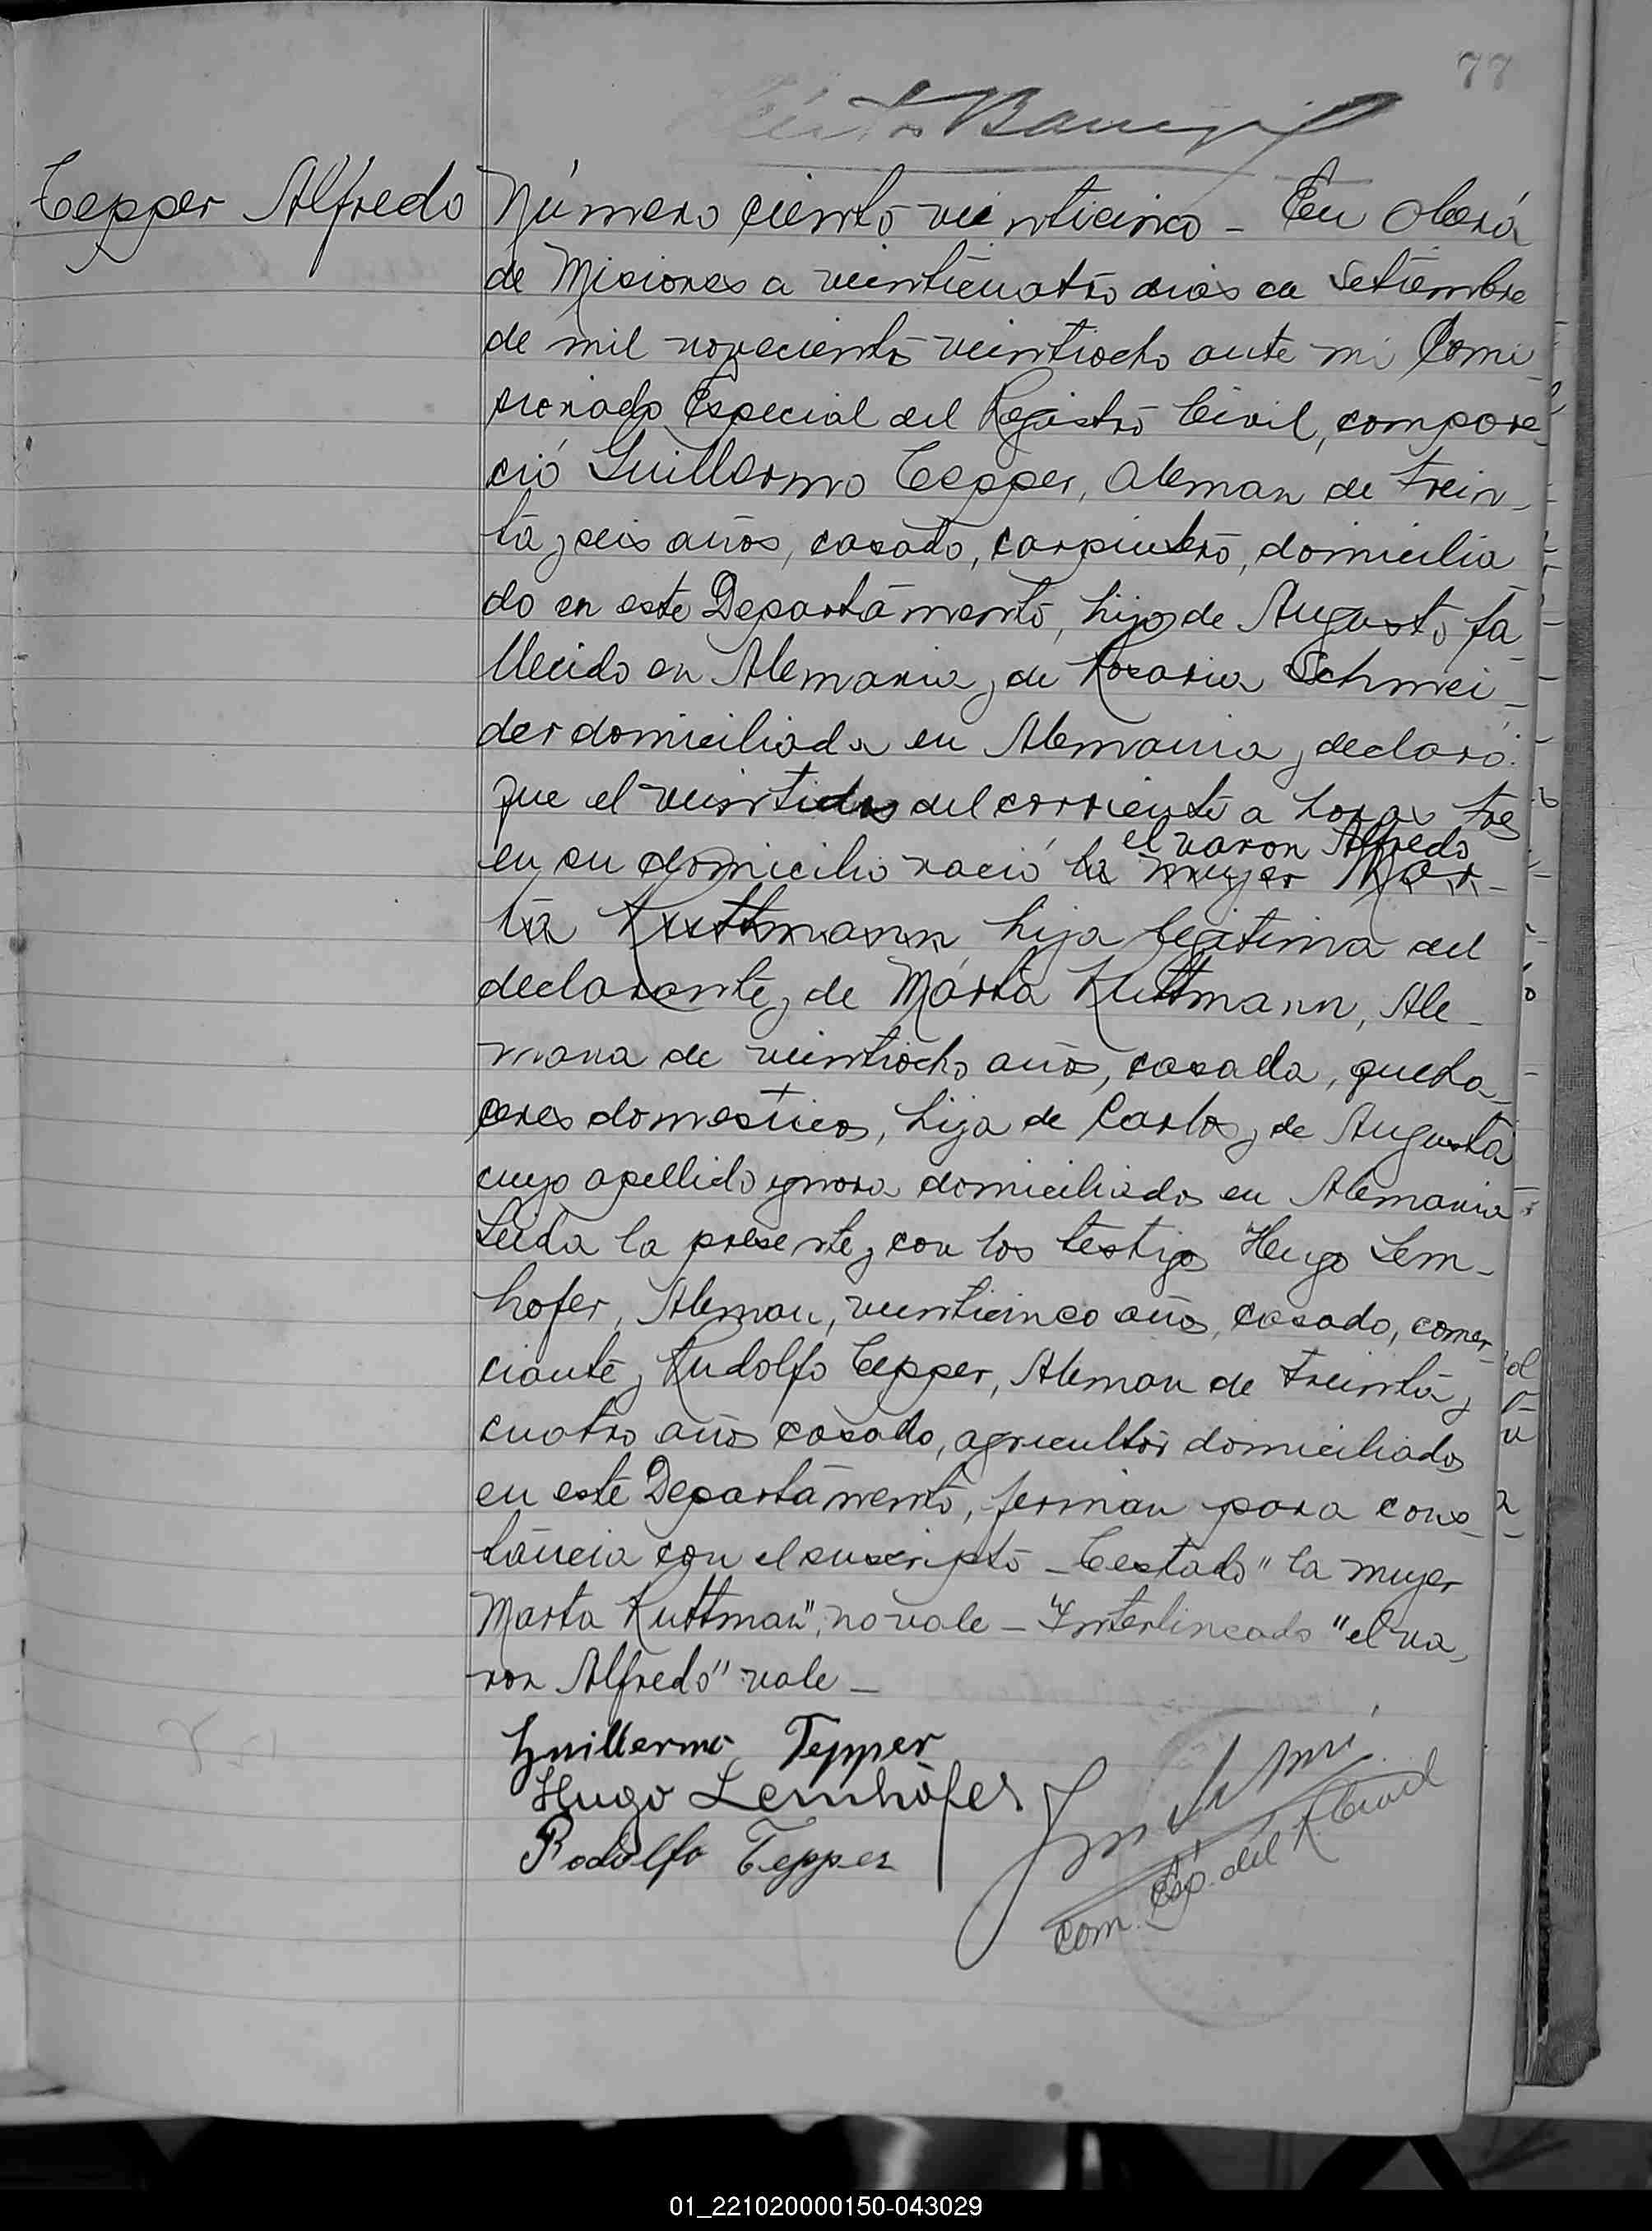 77
Tepper Alfredo
Número ciento veinticinco - En Oberá
de Misiones a veinticuatro dias de Setiembre
de mil novecientos veintiocho ante mi Comi
sionado Especial del Registro Civil, compare-
ció Guillermo Tepper, Aleman de trein-
ta y seis años, casado, carpintero, domicilia
do en este Departamento, hijo de Augusto fa-
llecido en Alemania y de Rosaria Schmei-
der domiciliada en Alemania y declaró:
que el veintidos del corriente a horas tres
el varon Alfredo
en su domicilio nació la mujer Mar-
ta Kuttmann hija legitima del
declarante y de Marta Kuttmann, Ale-
mana de veintiocho años, casada, queha-
ceres domesticos, hija de Carlos y de Augusta
cuyo apellido ignora domiciliados en Alemania
Leida la presente y con los testigos Hugo Lem-
hofer, Aleman, veinticinco años, casado, comer-
ciante y Rudolfo Tepper, Aleman de treinta y
cuatro años casado, agricultor domiciliados
en este Departamento, firman para cons-
tancia con el suscripto - Testado "la mujer
Marta Kuttman", no vale - "Interlineado "el va-
ron Alfredo" vale -
Guillermo Tepper
Hugo Lemhöfer
Rodolfo Tepper
Com. Esp. del R. Civil
01_221020000150-043029